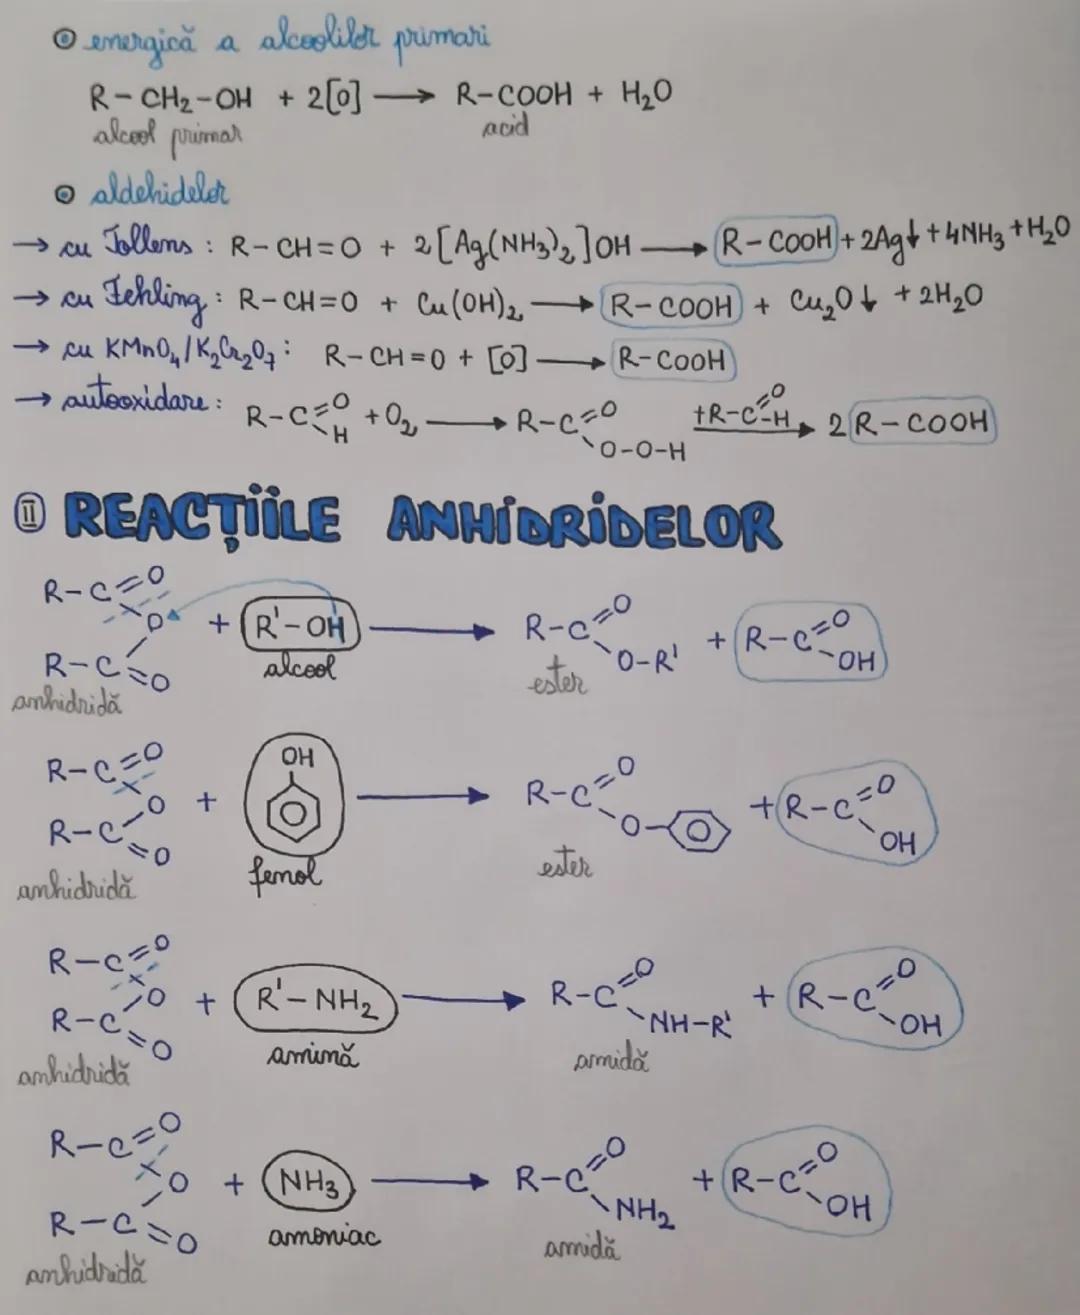 energică a alcoolilor primari
R-CH₂-OH + 2[O] → R-COOH + H₂O
alcool primar acid
aldehidelor
→ cu Tollens: R-CH=O + 2[Ag(NH₃)₂]OH → R-COOH + 2Ag↓ + 4NH₃ + H₂O
→ cu Fehling: R-CH=O + Cu(OH)₂ → R-COOH + Cu₂O↓ + 2H₂O
→ cu KMnO₄/K₂Cr₂O₇: R-CH=O + [O] → R-COOH
→ autooxidare: R-C=O H + O₂ → R-C=O O-O-H +R-C=O-H → 2 R-COOH
II REACȚIILE ANHIDRIDELOR
R-C=O O R-C=O + R'-OH → R-C=O O-R' + R-C=O OH
anhidridă alcool ester
R-C=O O R-C=O + OH → R-C=O O + R-C=O OH
anhidridă fenol ester
R-C=O O R-C=O + R'-NH₂ → R-C=O NH-R' + R-C=O OH
anhidridă amină amidă
R-C=O O R-C=O + NH₃ → R-C=O NH₂ + R-C=O OH
anhidridă amoniac amidă